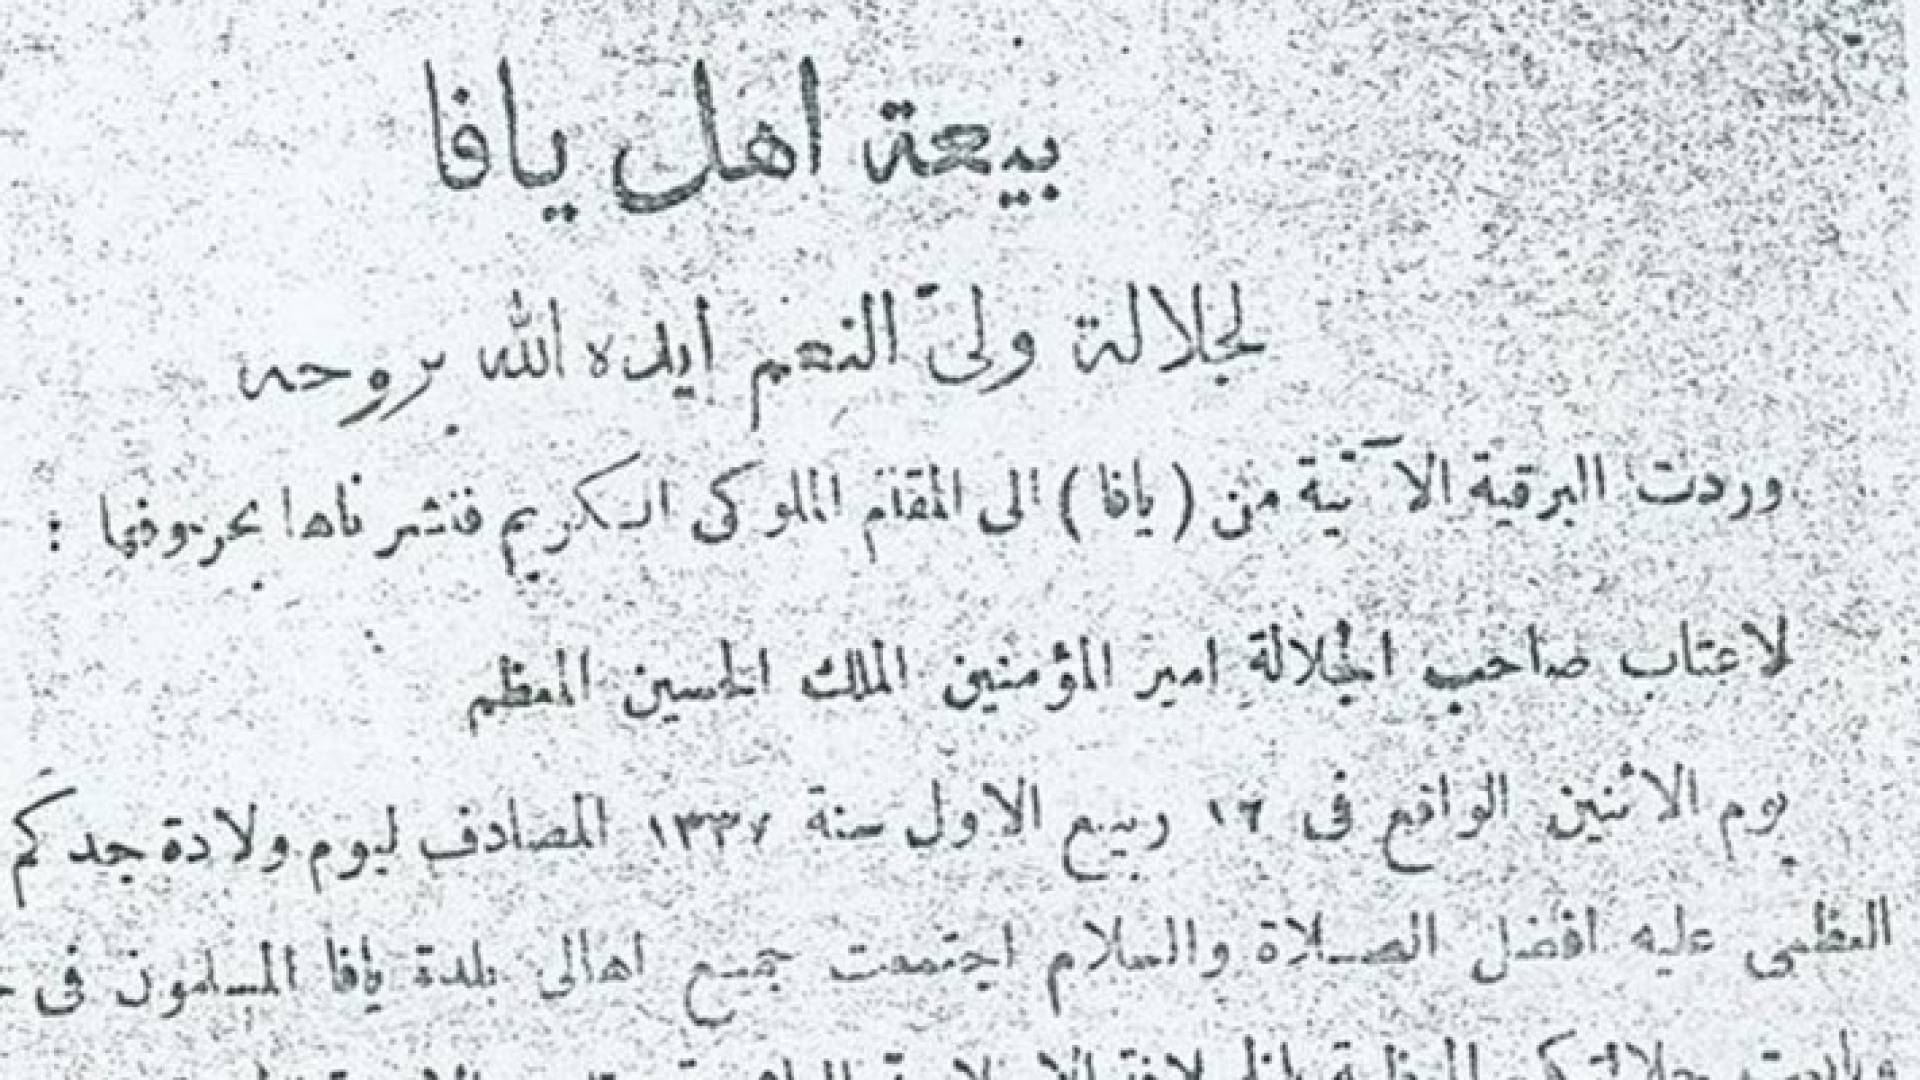 بيعة اهل يافا
لجلالة ولىّ النعم أيده الله بروحه
وردت البرقية الآتية من (يافا) الى المقام الملوكى الكريم فنشرناها بحروفها :
لاعتاب صاحب الجلالة امير المؤمنين الملك الحسين المعظم
يوم الاثنين الواقع فى ١٦ ربيع الاول سنة ١٣٣٧ المصادف ليوم ولادة جدكم
العظمى عليه افضل الصلاة والسلام اجتمعت جميع اهالى بلدة يافا المسلمون فى